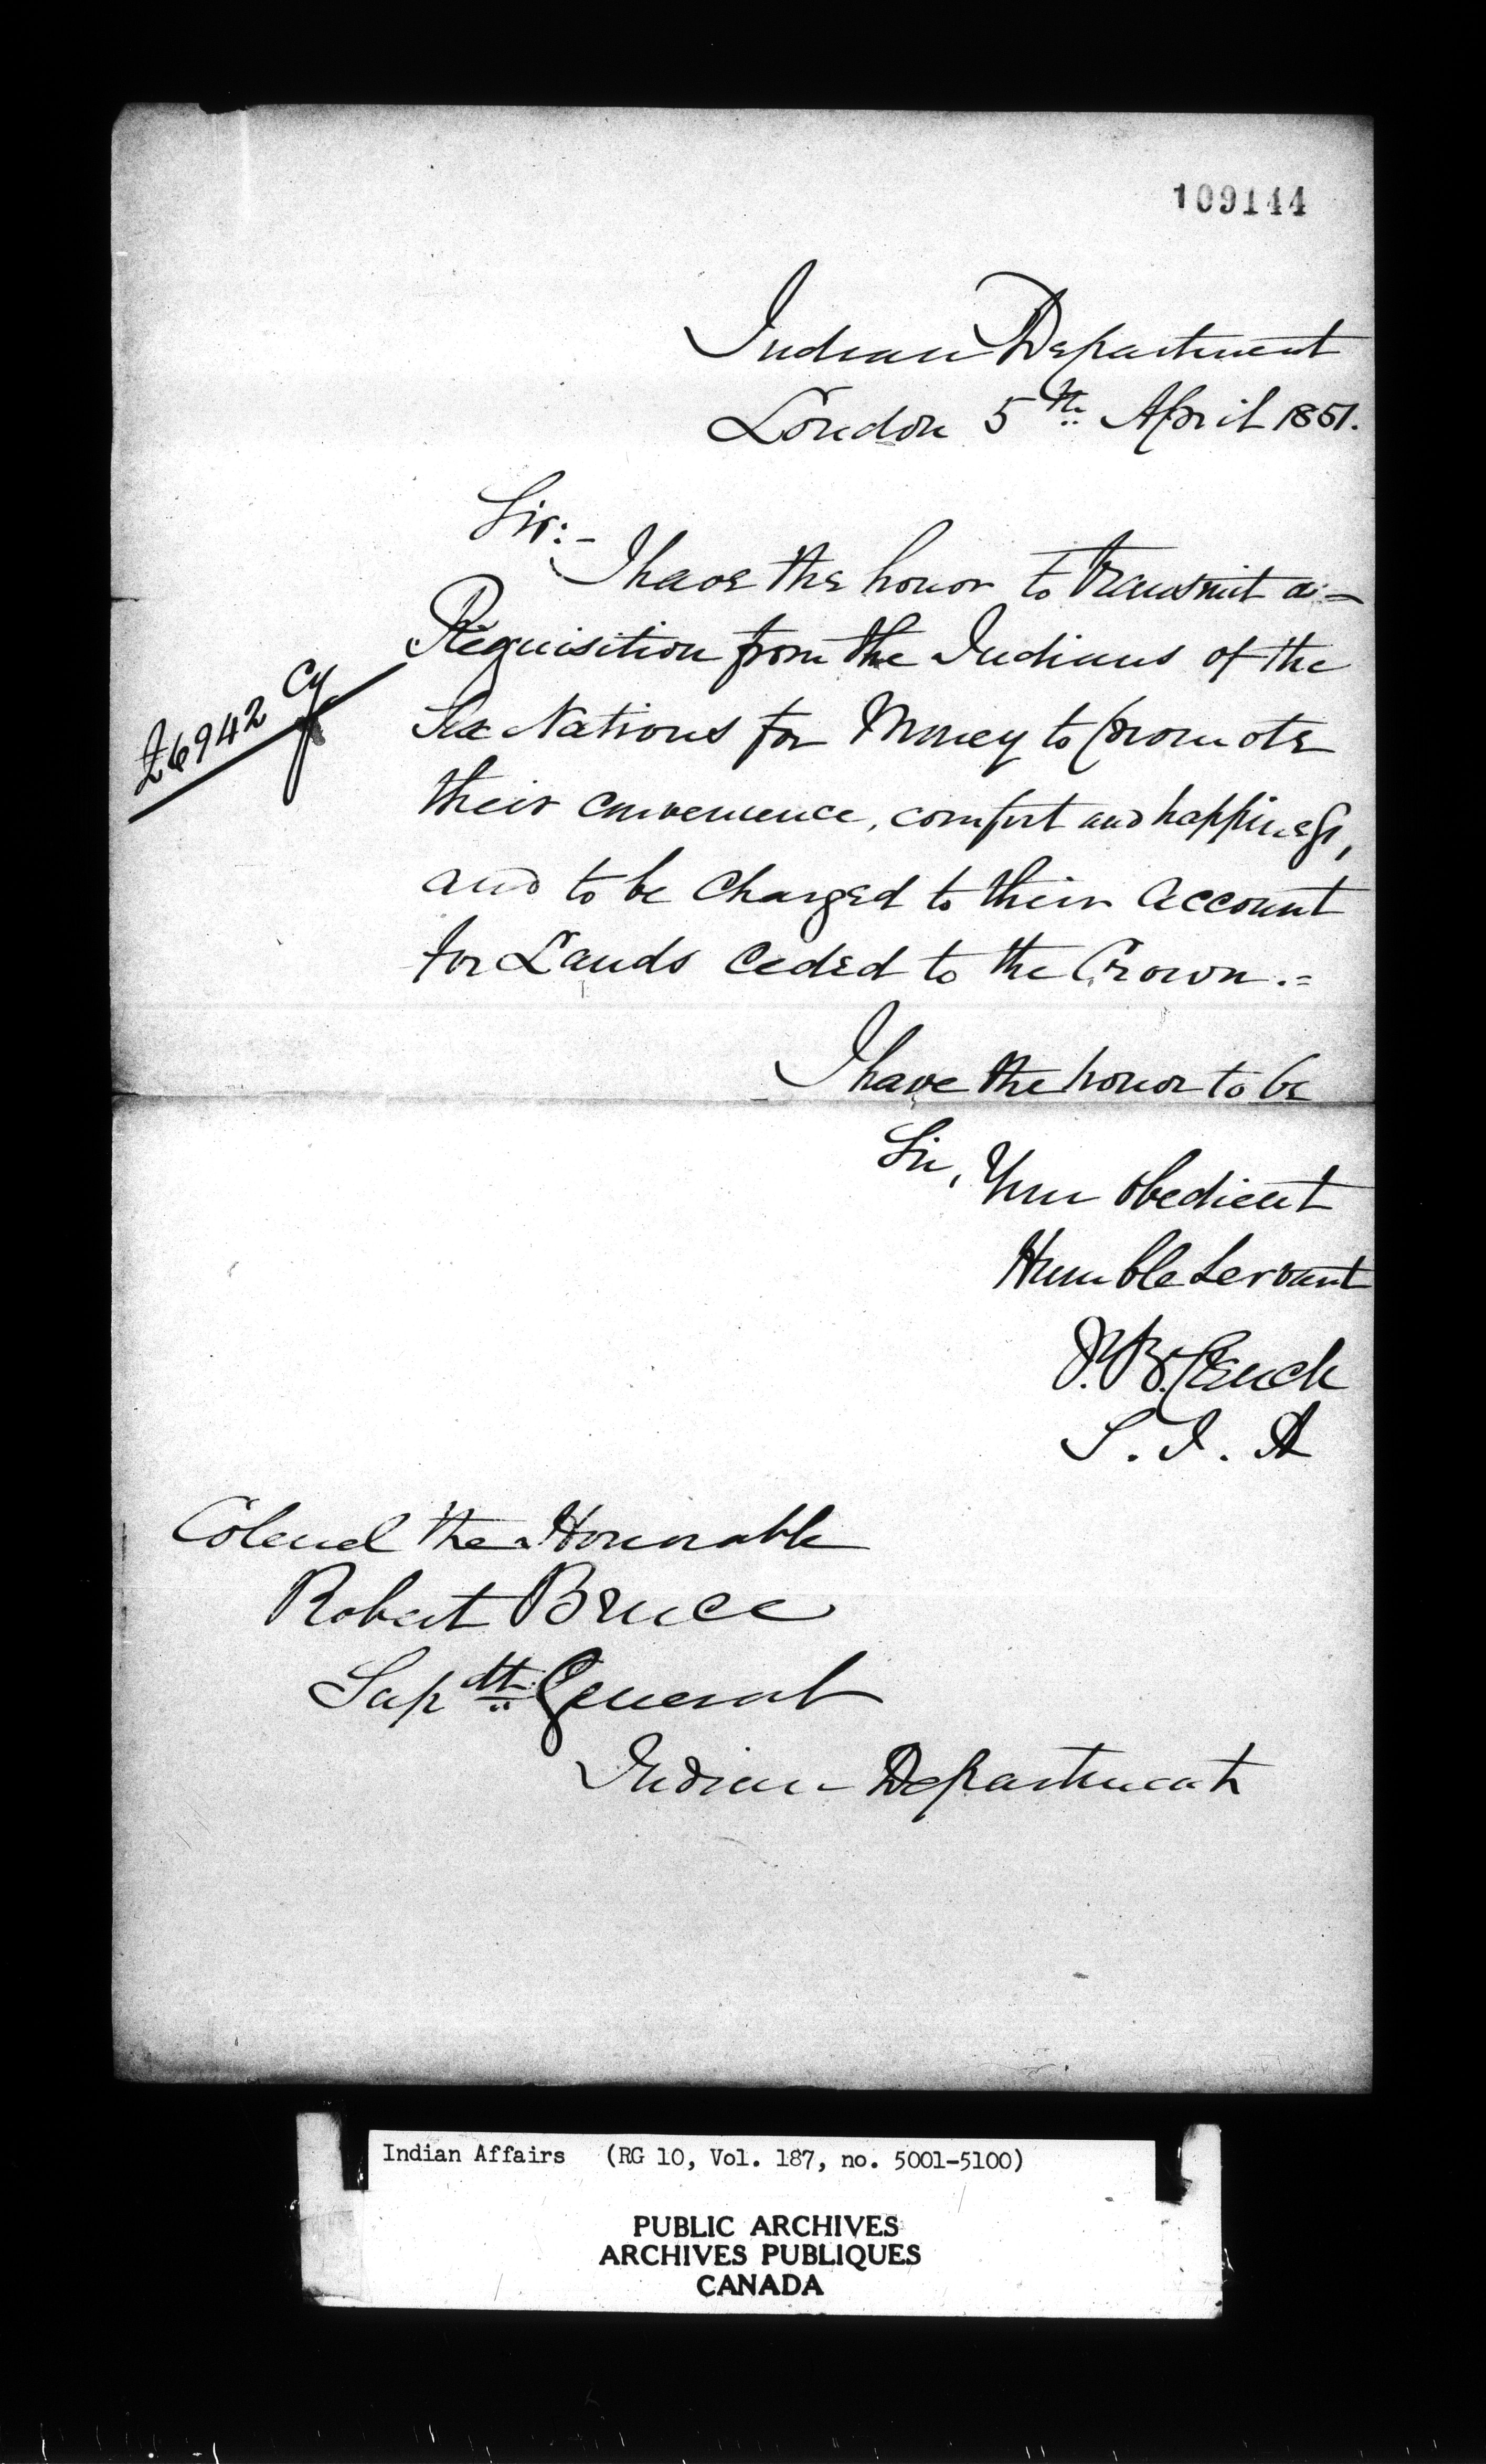 109144
Indian Department
London 5th April 1851.
Sir:-
I have the honor to transmit a=
Requisition from the Indians of the
Six Nations for Money to promote
£6942 Cy
their convenience, comfort and happiness,
and to be charged to their account
for Lands ceded to the Crown.=
I have the honor to be
Sir, Your obedient
Humble Servant
J.B. Clench
S. I. A
Colonel the Honorable
Robert Bruce
Supdtt General
Indian Department
Indian Affairs (RG 10, Vol. 187, no. 5001-5100)
PUBLIC ARCHIVES
ARCHIVES PUBLIQUES
CANADA